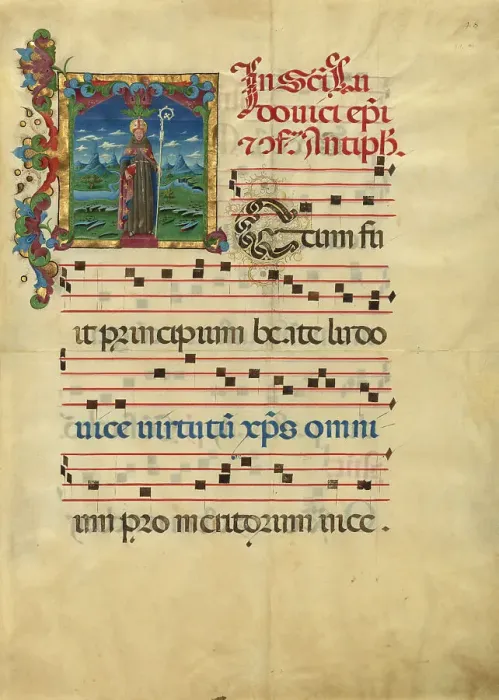 In Sc̄i Lu
douici ep̄i
⁊ ꝯf. Antiph.
Tecum fu
it principium beate ludo
uice uirtutū xp̄s omni
um pro meritorum uice .